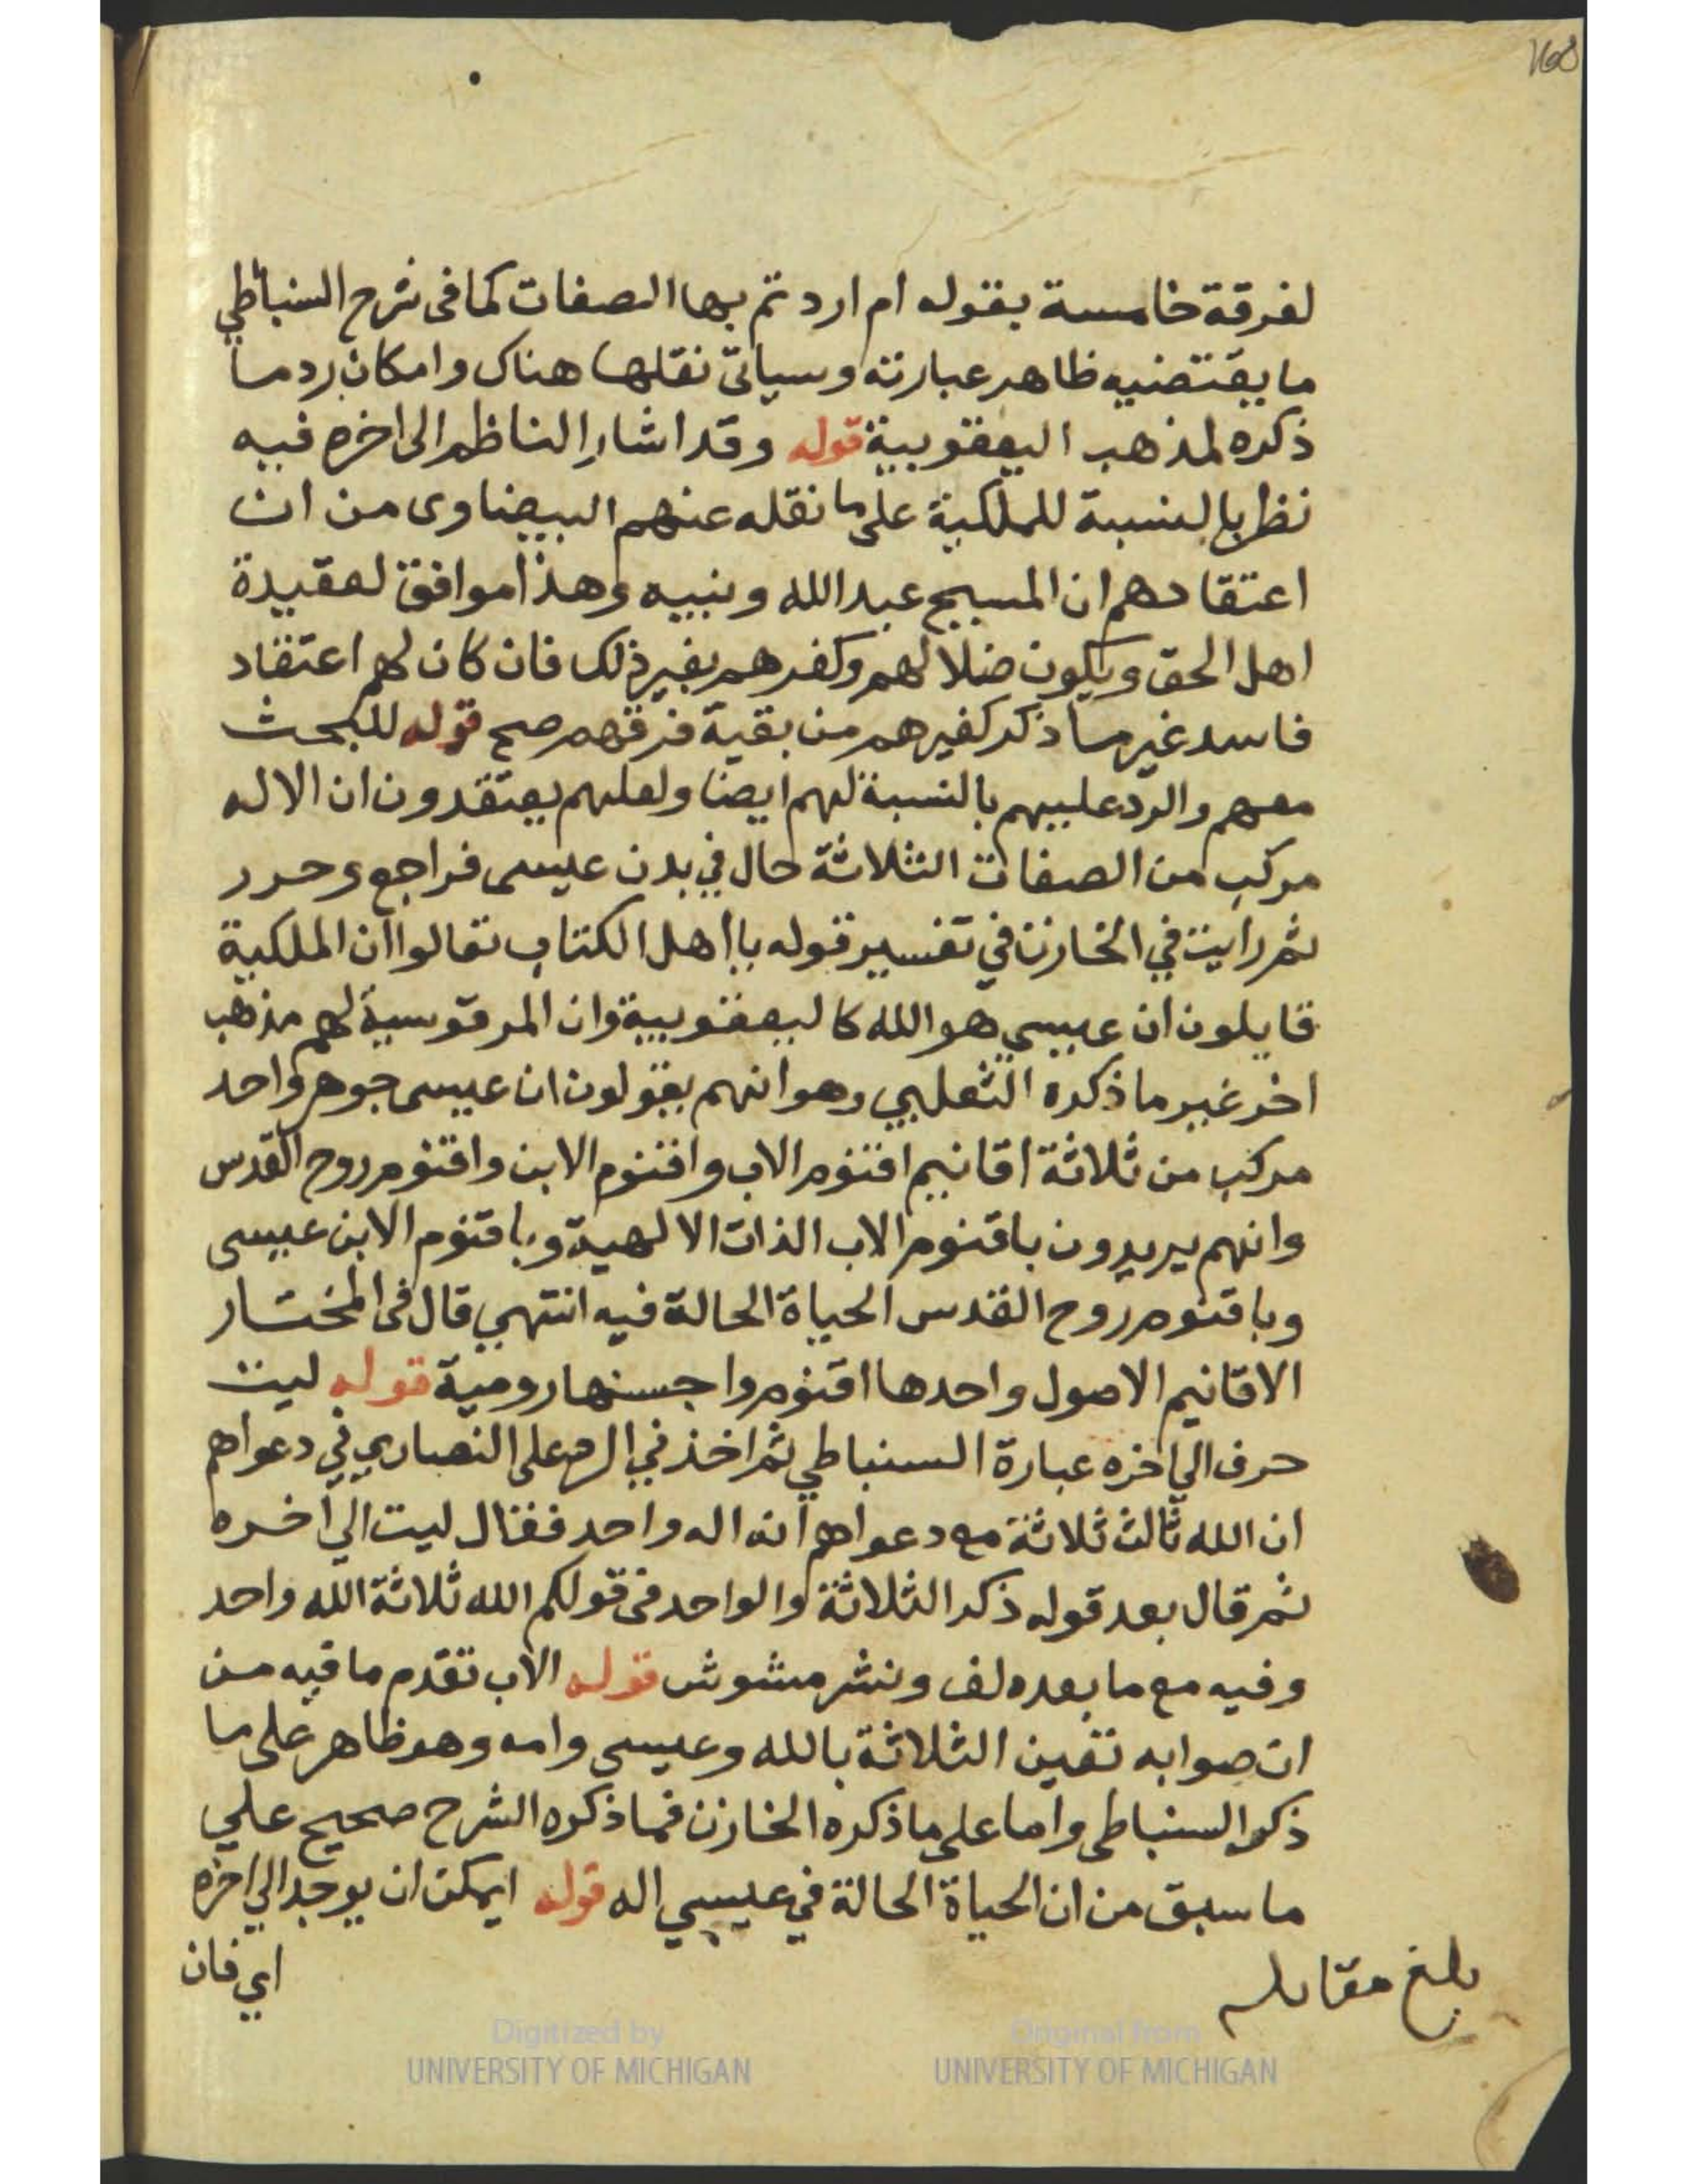 168
لفرقة خامسة بقوله ام اردتم بها الصفات كما فى شرح السنباطي
ما يقتضيه ظاهر عبارته وسياتى نقلها هناك وامكان رد ما
ذكره لمذهب اليعقوبية قوله وقد اشار الناظم الى اخره فيه
نظر بالنسبة للملكية على ما نقله عنهم البيضاوى من ان
اعتقادهم ان المسيح عبد الله ونبيه وهذا موافق لعقيدة
اهل الحق ويكون ضلالهم وكفرهم بغير ذلك فان كان لهم اعتقاد
فاسد غير ما ذكر كغيرهم من بقية فرقهم صح قوله للبحث
معهم والرد عليهم بالنسبة لهم ايضا ولعلهم يعتقدون ان الاله
مركب من الصفات الثلاثة حال في بدن عيسى فراجع وحرر
ثم رايت في الخازن في تفسير قوله يا اهل الكتاب تعالوا ان الملكية
قايلون ان عيسي هو الله كاليعقوبية وان المرقوسية لهم مذهب
اخر غير ما ذكره الثعلبي وهو انهم يقولون ان عيسى جوهر واحد
مركب من ثلاثة اقانيم اقنوم الاب واقنوم الابن واقنوم روح القدس
وانهم يريدون باقنوم الاب الذات الالهية وباقنوم الابن عيسى
وباقنوم روح القدس الحياة الحالة فيه انتهي قال فى المختار
الاقانيم الاصول واحدها اقنوم واحسنها رومية قوله ليت
حرف الي اخره عبارة السنباطي ثم اخذ في الرد على النصاري في دعواهم
ان الله ثالث ثلاثة مع دعواهم انه اله واحد فقال ليت الي اخره
ثم قال بعد قوله ذكر الثلاثة والواحد فى قولكم الله ثلاثة الله واحد
وفيه مع ما بعده لف ونشر مشوش قوله الاب تقدم ما فيه من
ان صوابه تعين الثلاثة بالله وعيسي وامه وهو ظاهر على ما
ذكره السنباطى واما على ما ذكره الخازن فما ذكره الشرح صحيح علي
ما سبق من ان الحياة الحالة في عيسي اله قوله ايمكن ان يوجد الي اخره
اي فان
بلغ مقابلة
Digitized by
UNIVERSITY OF MICHIGAN
Original from
UNIVERSITY OF MICHIGAN